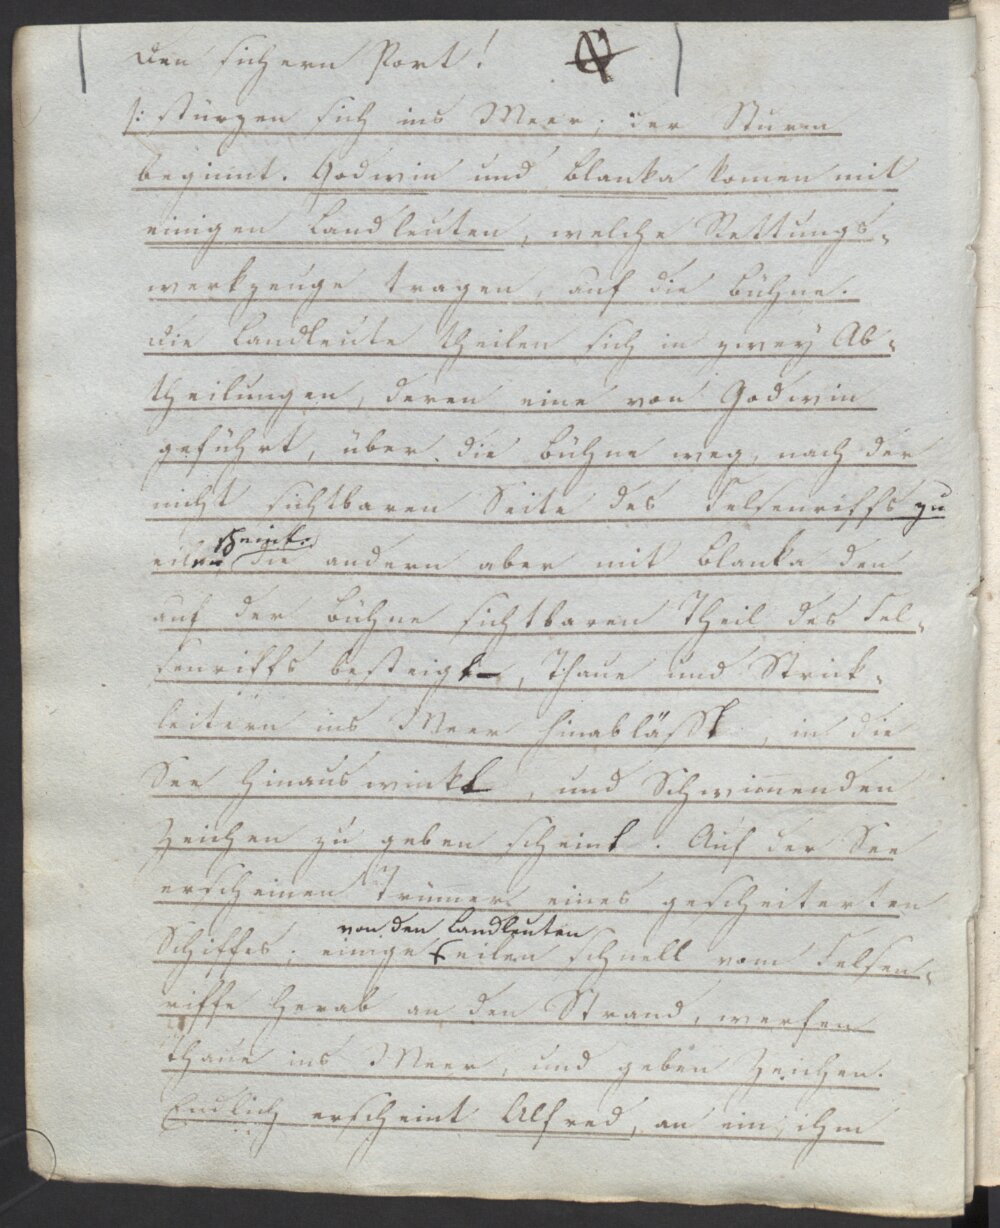 Den sichern Port!
/: stürzen sich ins Meer; der Sturm
beginnt. Godwin und Blanka komen mit
einigen Landleuten, welche Rettungs-
werkzeuge tragen, auf die Bühne.
Die Landleute theilen sich in zwey Ab-
theilungen, deren eine von Godwin
geführt, über die Bühne weg, nach der
nicht sichtbaren Seite des Felsenriffs zu
scheint.
eilen die andern aber mit Blanka den
auf der Bühne sichtbaren Theil des Fel-
senriffs besteigt, Thaue und Strick-
leitern ins Meer hinabläßt, in die
See hinaus winkt, und Schwimenden
Zeichen zu geben scheint. Auf der See
erscheinen Trümer eines gescheiterten
von den Landleuten
Schiffes; einige eilen schnell vom Felsen-
riffe herab an den Strand, werfen
Thaue ins Meer, und geben Zeichen.
Endlich erscheint Alfred, an ein, ihm